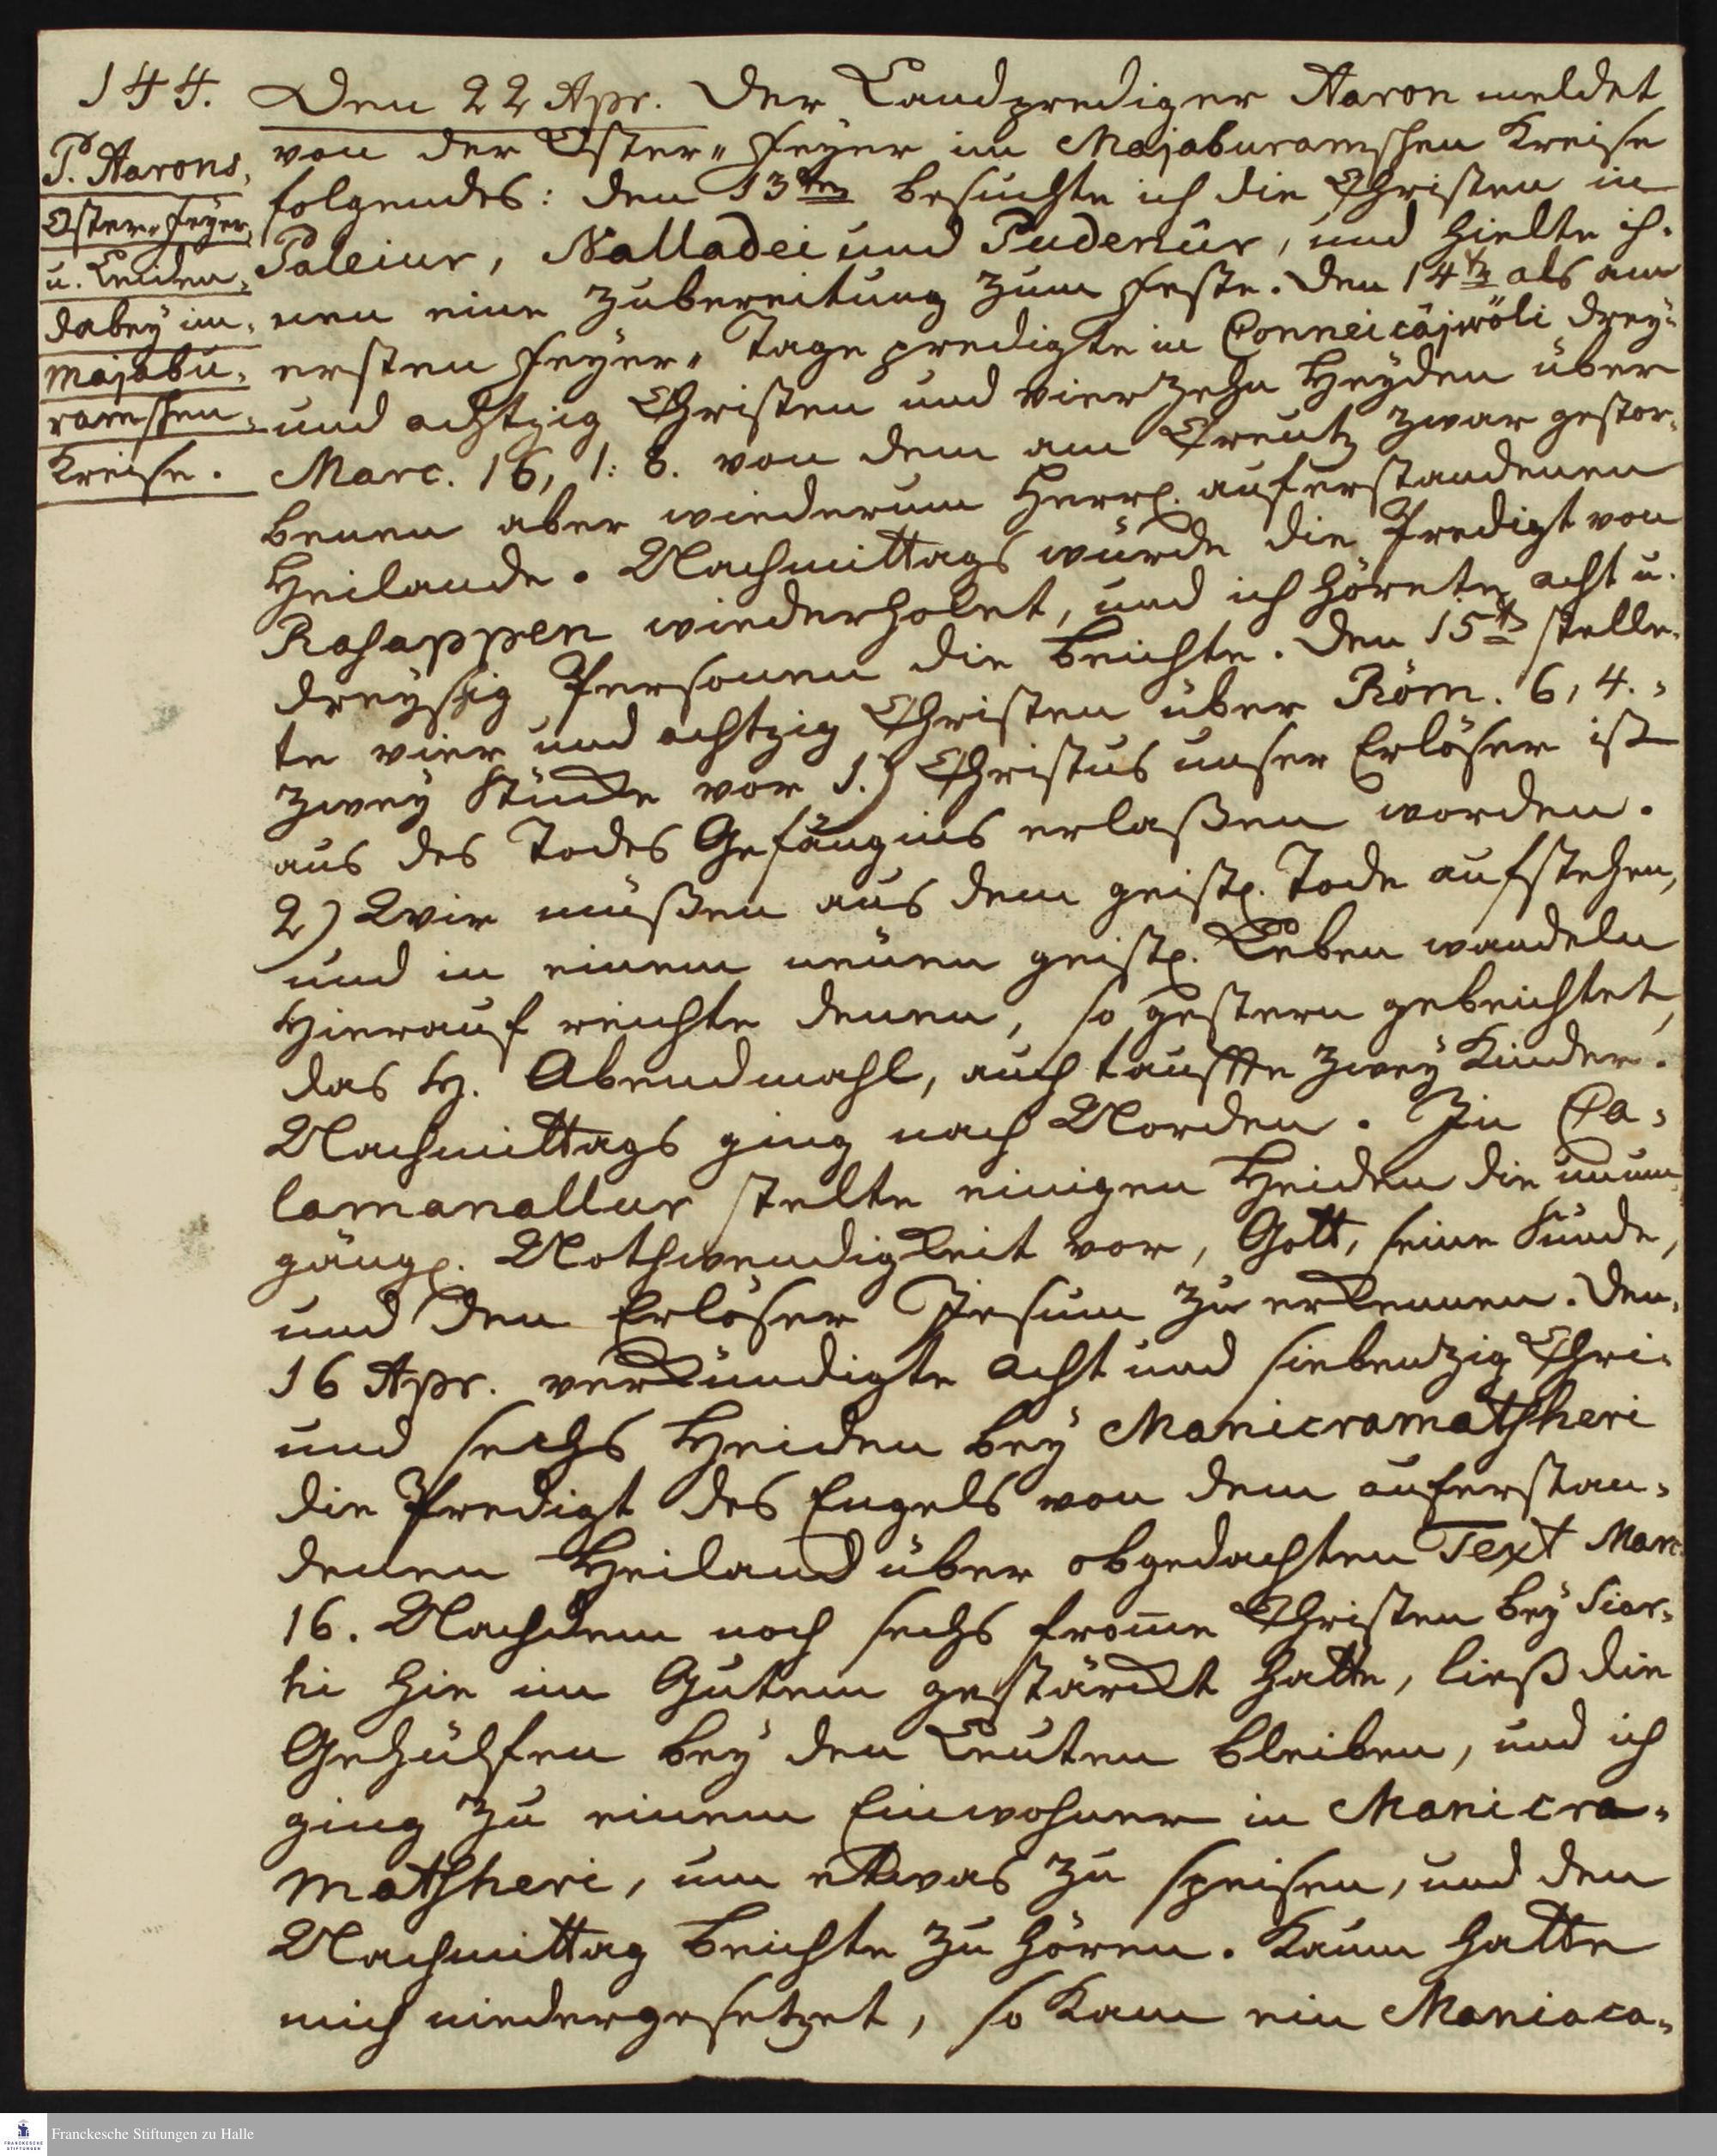 144.
P. Aarons,
Oster-Feyer,
u. Leiden,
dabey im,
Majabu,
ramschen,
Kreise.
Den 22 Apr. Der Landprediger Aaron meldet
von der Oster-Feyer im Majaburamschen Kreise
folgendes: den 13ten besuchte ich die Christen in
Paleiur, Nalladei und Pudenûr, und hielte ih-
nen eine Zubereitung zum Feste. Den 14t als am
ersten Feyer-Tage predigte in Conneicâjwöli drey-
und achtzig Christen und vierzehn Heyden über
Marc. 16, 1: 8. von dem am Creutz zwar gestor-
benen aber wiederum herrl. auferstandenen
Heilande. Nachmittags wurde die Predigt von
Rasappen wiederholet, und ich hörete acht u.
dreyßig Personen die Beichte. Den 15t stelle-
te vier und achtzig Christen über Röm. 6, 4.
zwey Stücke vor 1.) Christus unser Erlöser ist
aus des Todes Gefängnis erlaßen worden.
2) Wir müßen aus dem geistl. Tode aufstehen,
und in einem neuen geistl. Leben wandeln
Hierauf reichte denen, so gestern gebeichtet,
das H. Abendmahl, auch tauffte zwey Kinder.
Nachmittags ging nach Norden. In Ca-
lamanallur stelte einigen Heiden die unum
gängl. Nothwendigkeit vor, Gott, seine Sünde,
und den Erlöser Jesum zu erkennen. Den
16 Apr. verkündigte acht und siebenzig Chri-
und sechs Heiden bey Manicramatscheri
die Predigt des Engels von dem auferstan-
denen Heiland über obgedachten Text Marc.
16. Nachdem noch sechs from̅e Christen bey Siar-
hi hie im Gutem gestärckt hatte, ließ die
Gehülfen bey den Leuten bleiben, und ich
ging zu einem Einwohner in Manicra-
matscheri, um etwas zu speisen, und den
Nachmittag Beichte zu hören. Kaum hatte
mich niedergesetzet, so kam ein Maniaca-
Franckesche Stiftungen zu Halle